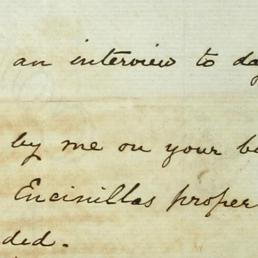 an interview to da
by me on your be
Encinillas proper
ded.